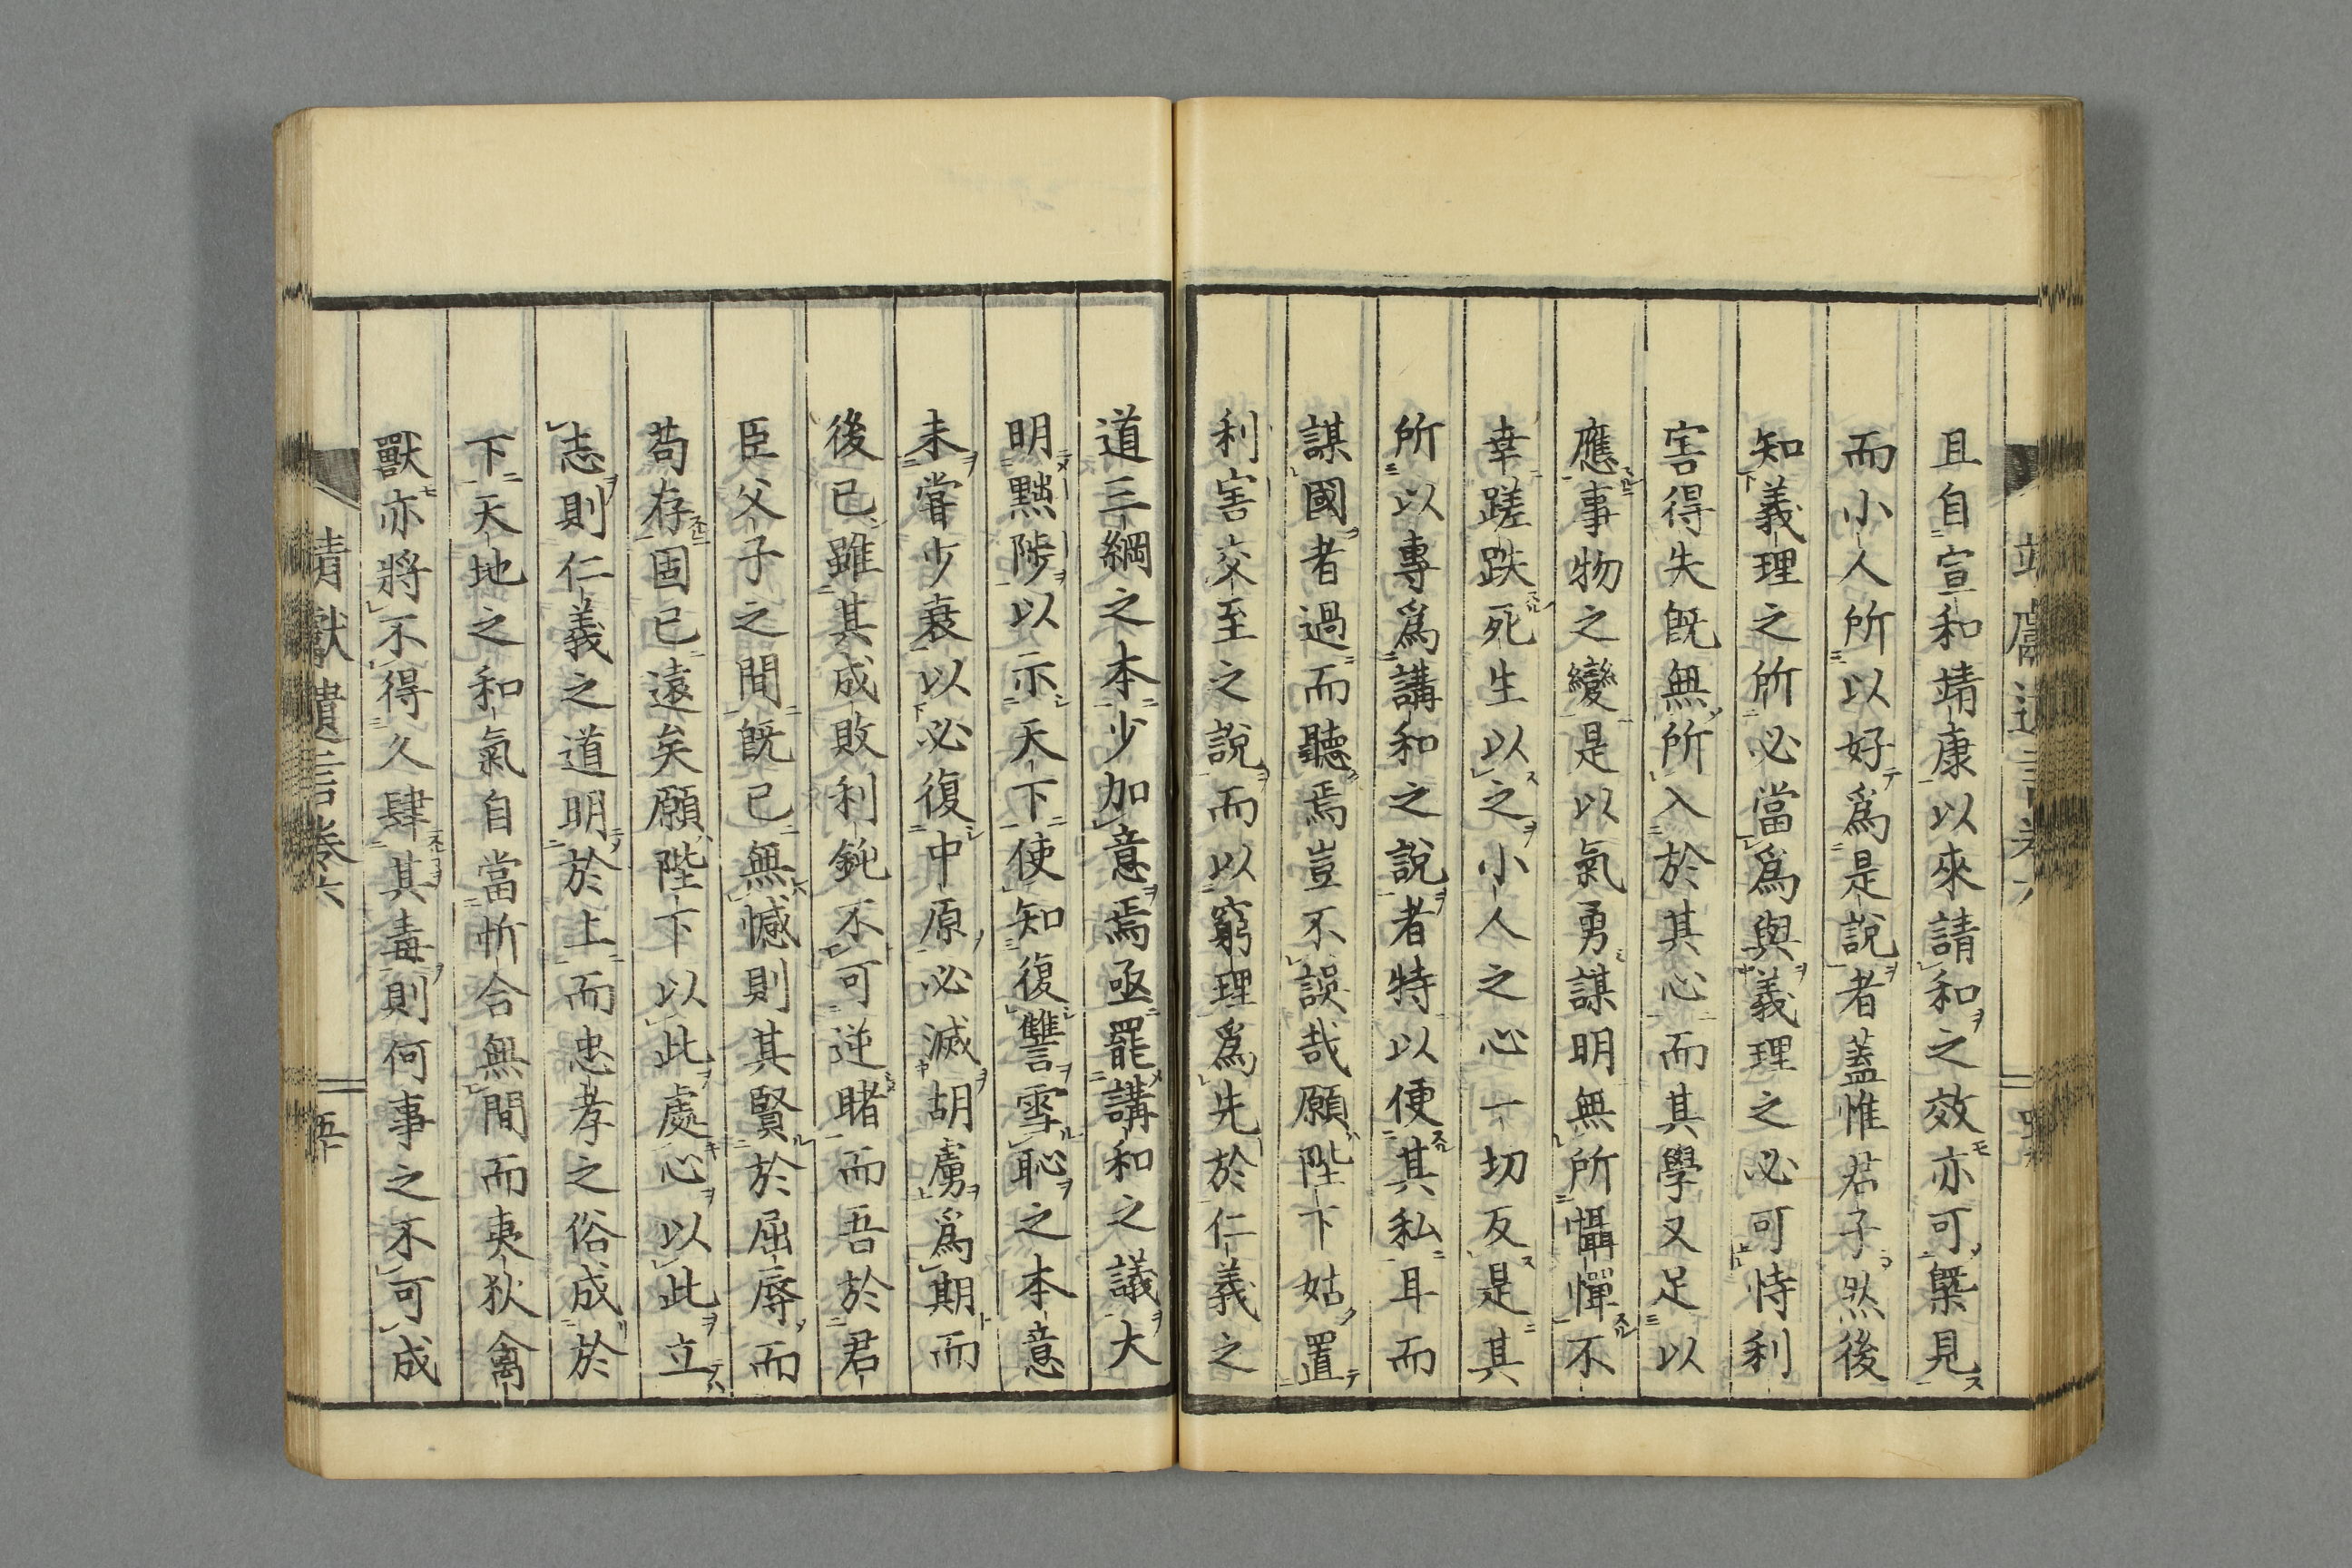 且自宣和靖康以來請和之效亦可槩見
而小人所以好爲是説者蓋惟君子然後
知義理之所必當爲與義理之必可恃利
害得失既無所入於其心而其學又足以
應事物之變是以氣勇謀明無所懾憚不
幸蹉跌死生以之小人之心一切反是其
所以專爲講和之説者特以便其私耳而
謀國者過而聽焉豈不誤哉願陛下姑置
利害交至之説而以窮理爲先於仁義之
道三綱之本少加意焉亟罷講和之議大
明黜陟以示天下使知復讐雪恥之本意
未嘗少衰以必復中原必滅胡虜爲期而
後已雖其成敗利鈍不可逆睹而吾於君
臣父子之間既已無憾則其賢於屈辱而
苟存固已遠矣願陛下以此處心以此立
志則仁義之道明於上而忠孝之俗成於
下天地之和氣自當忻合無間而夷狄禽
獸亦將不得久肆其毒則何事之不可成
靖獻遺言卷六